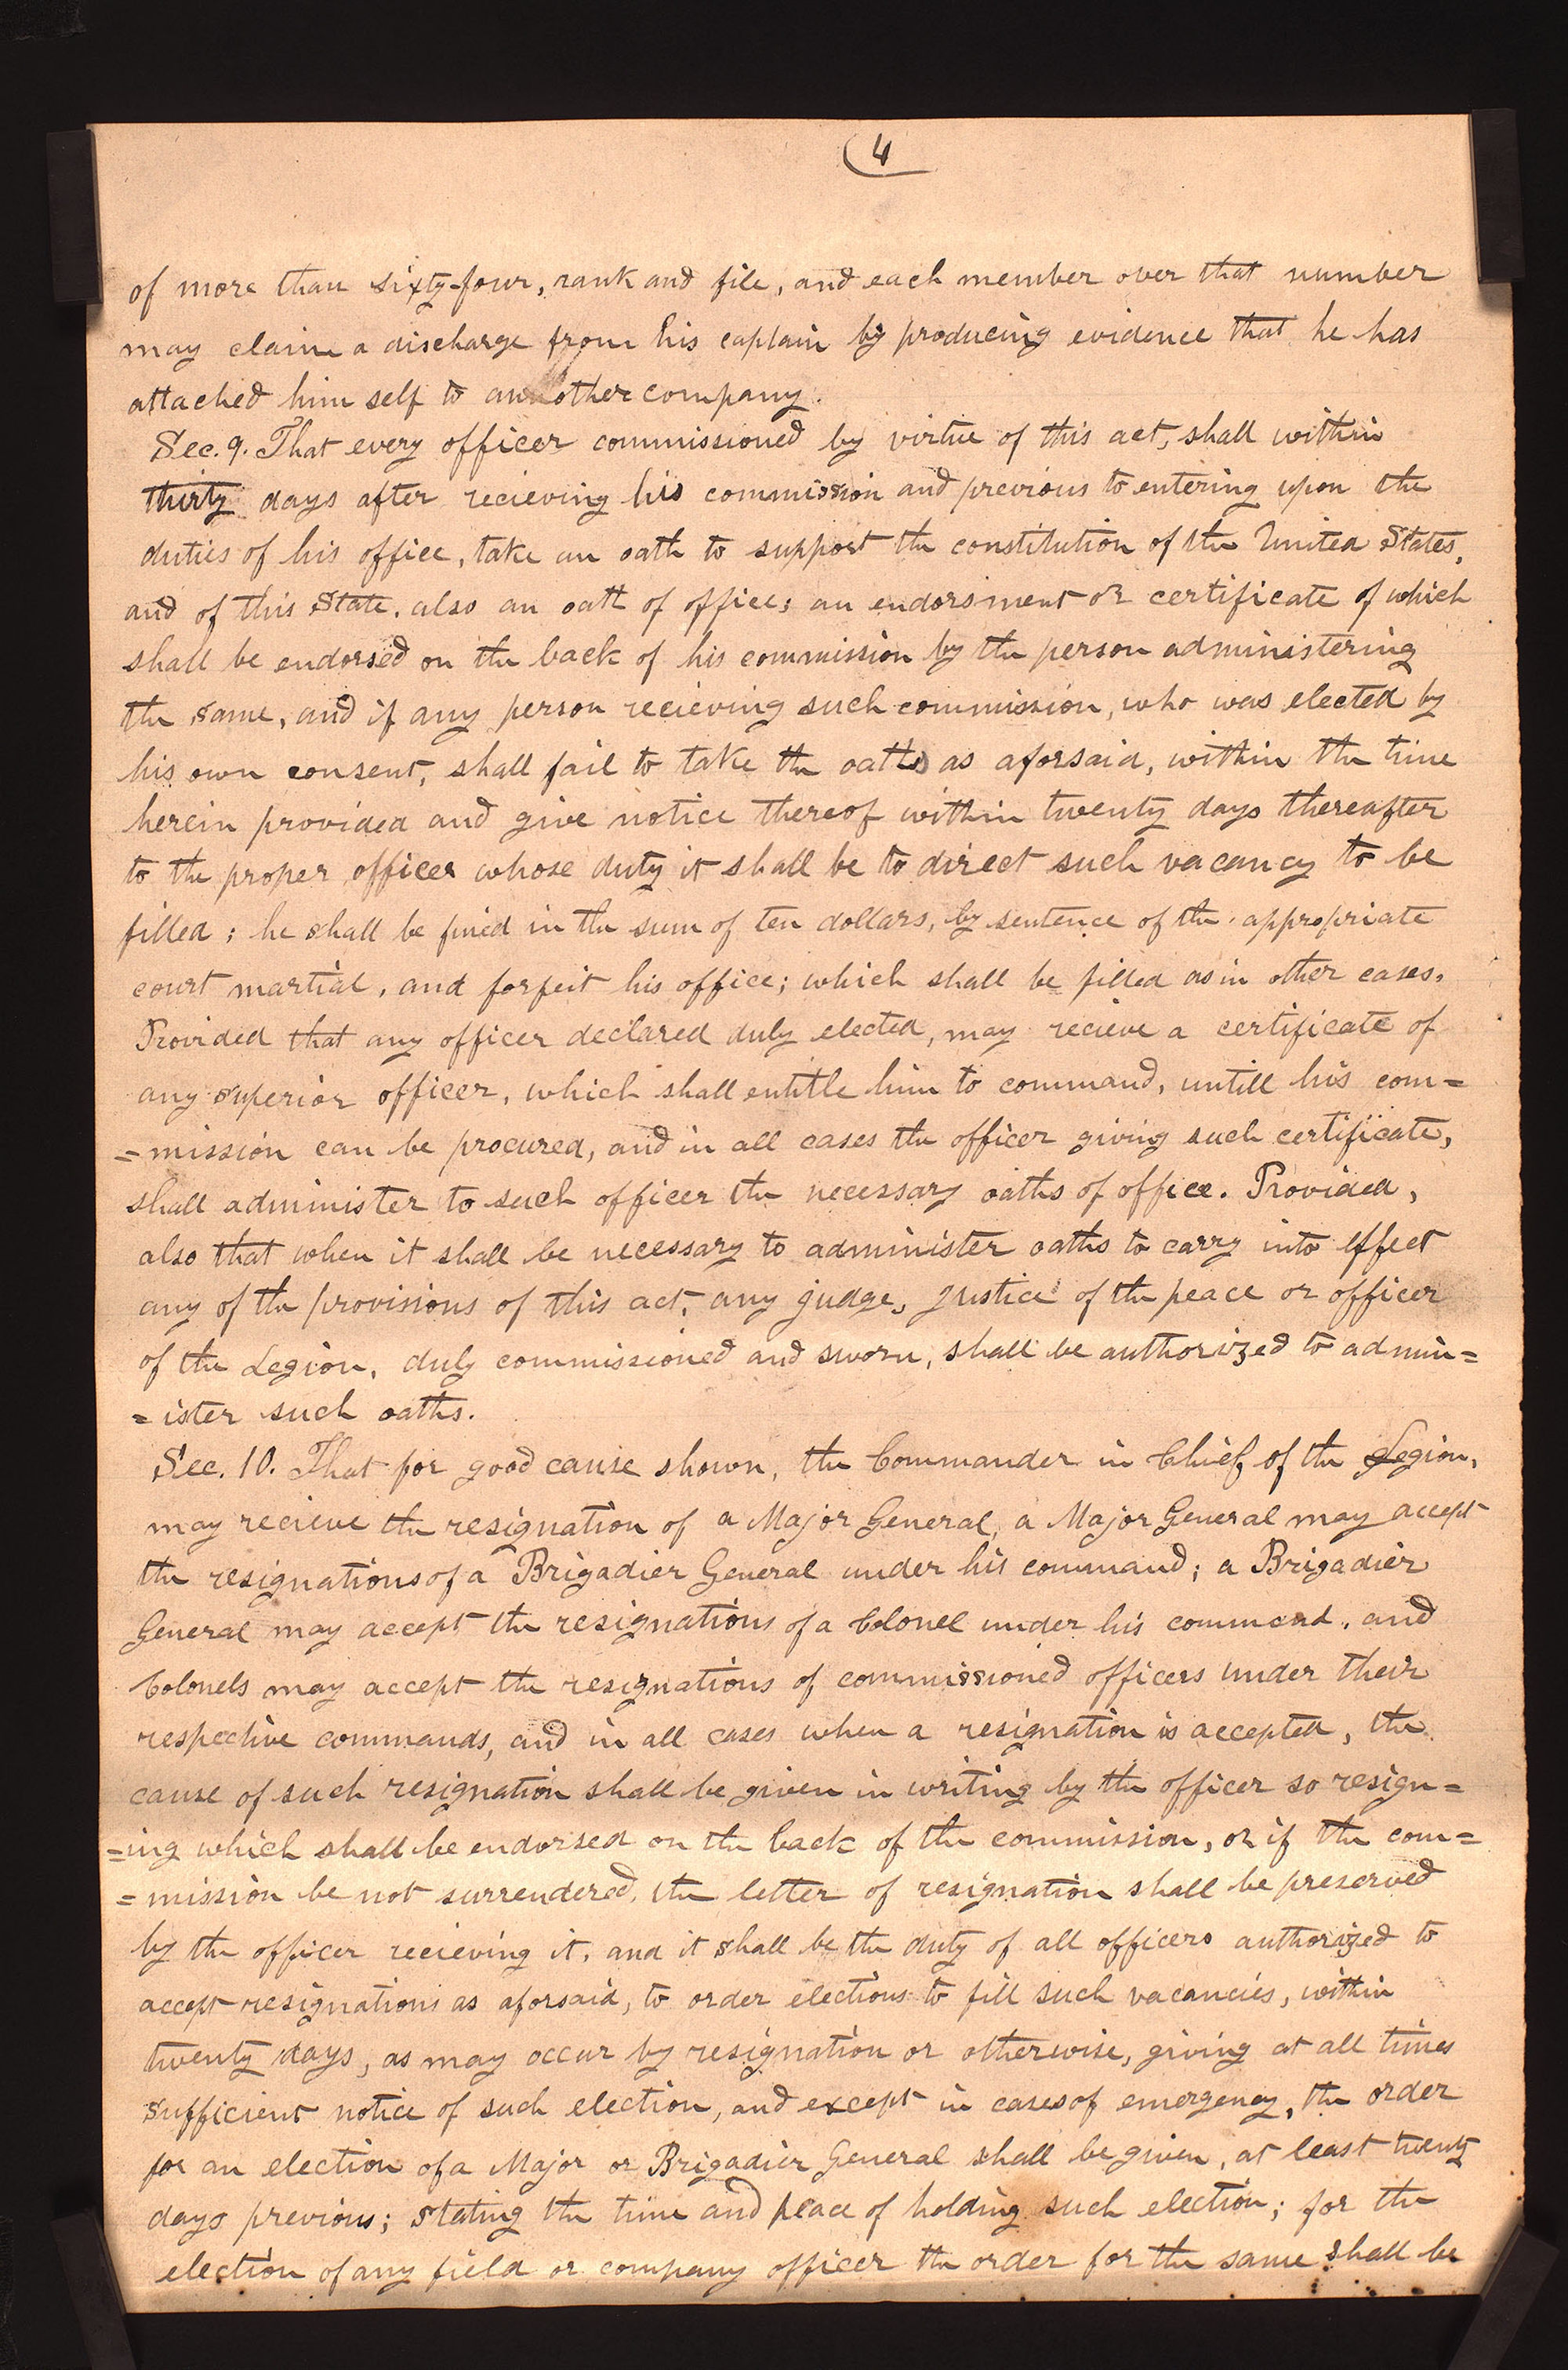 4
of more than sixty-four, rank and file, and each member over that number
may claim a discharge from his captain by producing evidence that he has
attached him self to another company.
Sec. 9. That every officer commissioned by virtue of this act, shall within
thirty days after recieving his commission and previous to entering upon the
duties of his office, take an oath to support the constitution of the United States,
and of this State. also an oath of office; an endorsment or certificate of which
shall be endorsed on the back of his commission by the person administering
the same, and if any person recieving such commission, who was elected by
his own consent, shall fail to take the oaths as aforsaid, within the time
herein provided and give notice thereof within twenty days thereafter
to the proper officer whose duty it shall be to direct such vacancy to be
filled; he shall be fined in the sum of ten dollars, by sentence of the appropriate
court martial, and forfeit his office; which shall be filled as in other cases.
Provided that any officer declared duly elected, may recieve a certificate of
any superior officer, which shall entitle him to command, untill his com=
=mission can be procured, and in all cases the officer giving such certificate,
shall administer to such officer the necessary oaths of office. Provided,
also that when it shall be necessary to administer oaths to carry into effect
any of the provisions of this act, any judge, justice of the peace or officer
of the Legion, duly commissioned and sworn, shall be authorized to admin=
=ister such oaths.
Sec. 10. That for good cause shown, the Commander in Chief of the Legion,
may recieve the resignation of a Major General, a Major General may accept
the resignations of a Brigadier General under his command; a Brigadier
General may accept the resignations of a Colonel under his command, and
Colonels may accept the resignations of commissioned officers under their
respective commands, and in all cases when a resignation is accepted, the
cause of such resignation shall be given in writing by the officer so resign=
=ing which shall be endorsed on the back of the commission, or if the com=
=mission be not surrendered, the letter of resignation shall be preserved
by the officer recieving it, and it shall be the duty of all officers authorized to
accept resignations as aforsaid, to order elections to fill such vacancies, within
twenty days, as may occur by resignation or otherwise, giving at all times
sufficient notice of such election, and except in cases of emergency, the order
for an election of a Major or Brigadier General shall be given, at least twenty
days previous; stating the time and place of holding such election; for the
election of any field or company officer the order for the same shall be